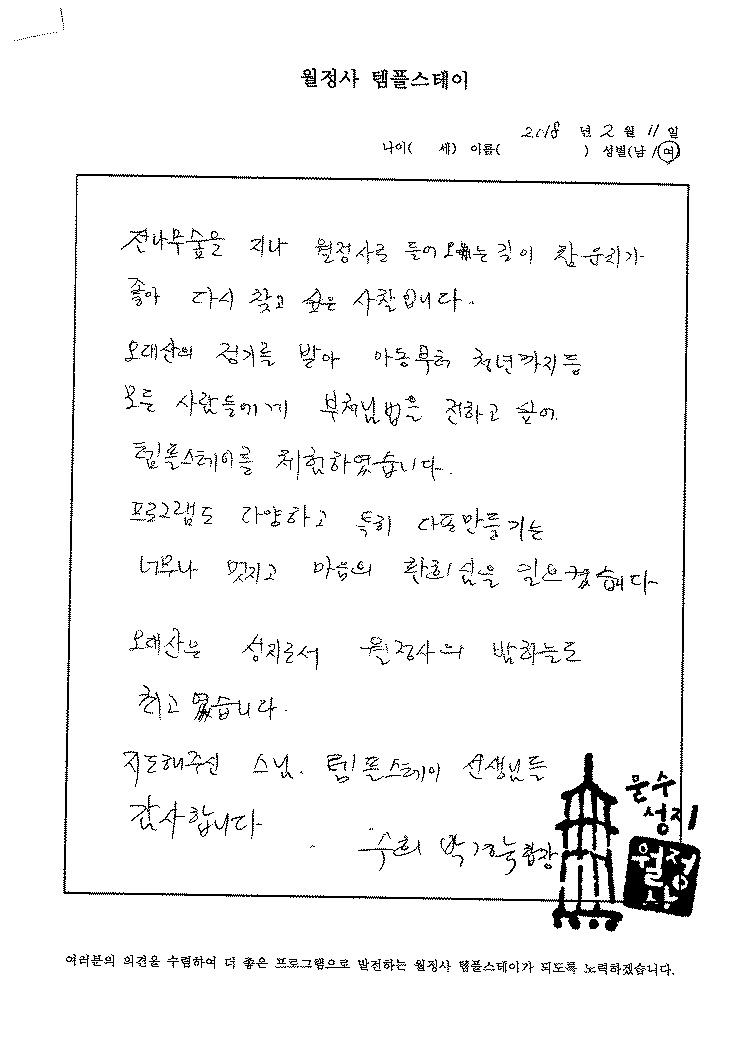 월정사 템플스테이
2018 년 2 월 11 일
나이( 세) 이름( ) 성별(남/여)
전나무숲을 지나 월정사로 들어오는 길이 참 운치가
좋아 다시 찾고 싶은 사찰입니다.
오대산의 정기를 받아 아동부터 청년까지등
모든 사람들에게 부처님법을 전하고 싶어
템플스테이를 체험하였습니다.
프로그램도 다양하고 특히 다포만들기는
너무나 멋지고 마음의 환희심을 일으켰습니다
오대산은 성지로서 월정사의 밤하늘도
최고였습니다.
지도해주신 스님. 템플스테이 선생님들
감사합니다
수희 박 합장
문수
성지
월정
사
여러분의 의견을 수렴하여 더 좋은 프로그램으로 발전하는 월정사 템플스테이가 되도록 노력하겠습니다.